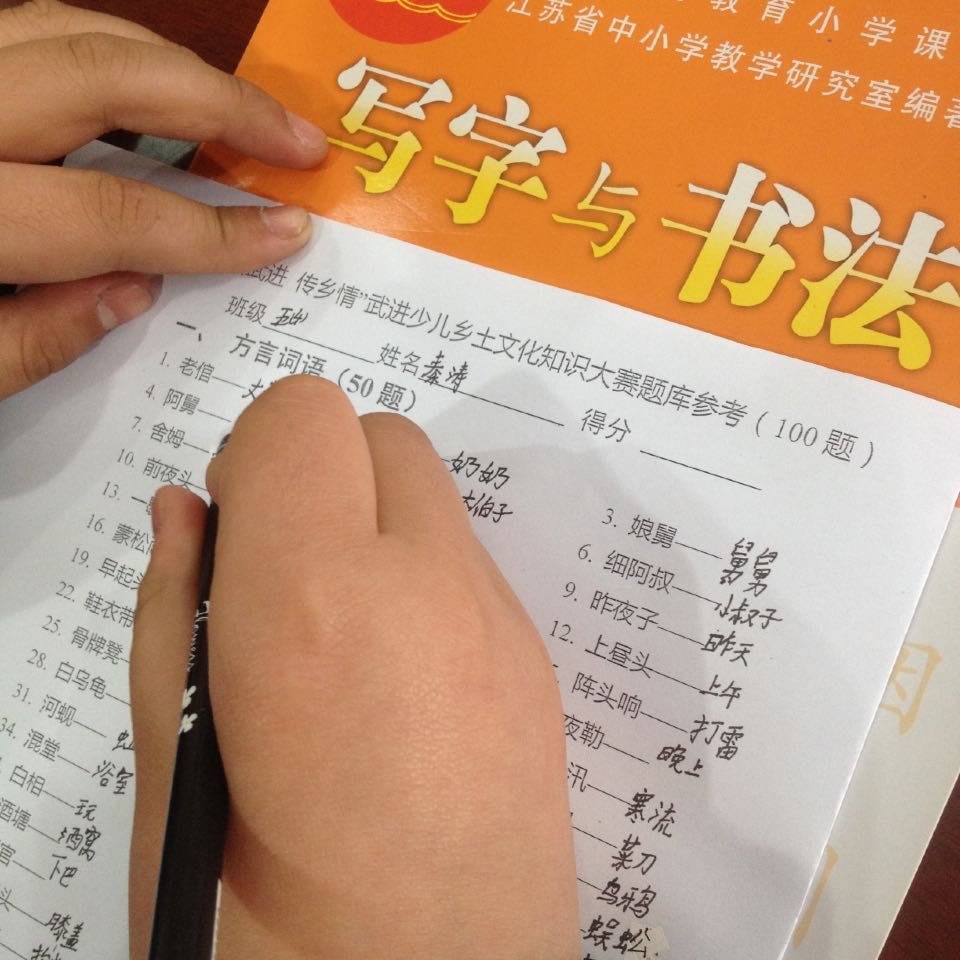 教育小学课
江苏省中小学教学研究室编著
写字与书法
武进 传乡情"武进少儿乡土文化知识大赛题库参考（100题）
班级 姓名秦涛 得分
一、方言词语（50题）
1. 老倌—— 奶奶 3. 娘舅——舅舅
4. 阿舅—— 大伯子 6. 细阿叔——小叔子
7. 舍姆—— 9. 昨夜子——昨天
10. 前夜头 12. 上昼头——上午
13. 一 阵头响——打雷
16. 蒙松 夜勒——晚上
19. 早起头 汛——寒流
22. 鞋衣带 菜刀
25. 骨牌凳 乌鸦
28. 白乌龟 蜈蚣
31. 河蚬——
34. 混堂——浴室
白相——玩
酒塘——酒窝
官——下巴
头——膝盖